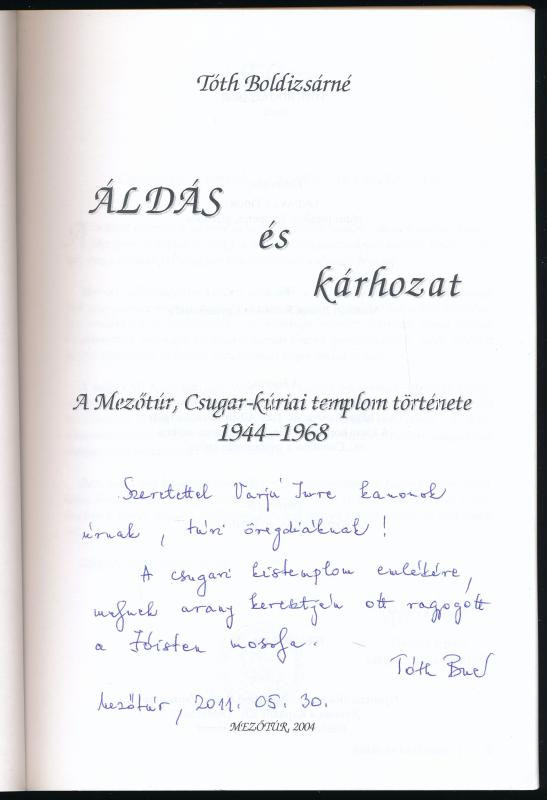 Tóth Boldizsárné
ÁLDÁS
és
kárhozat
A Mezőtúr, Csugar-kúriai templom története
1944–1968
Szeretettel Varjú Imre kanonok
úrnak, túri öregdiáknak!
A csugari kistemplom emlékére,
melynek arany keresztjén ott ragyogott
a Jóisten mosolya.
Tóth Bné
Mezőtúr, 2011. 05. 30.
MEZŐTÚR, 2004